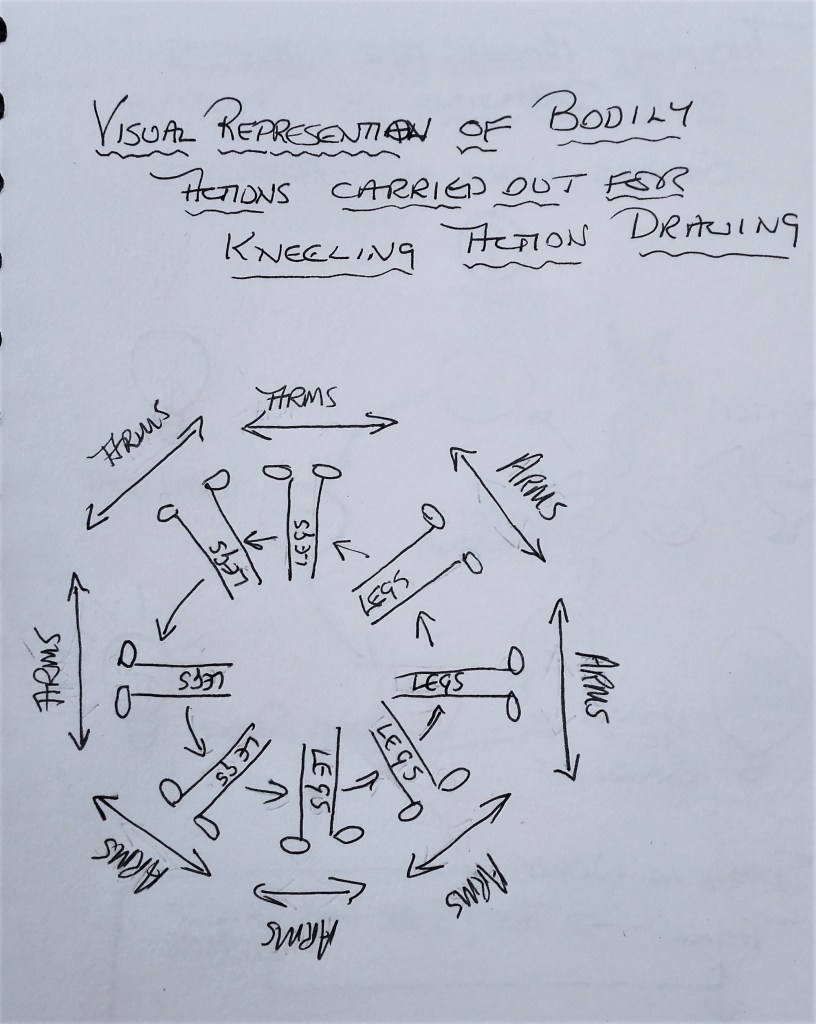 VISUAL REPRESENTIAN OF BODILY
ACTIONS CARRIED OUT FOR
KNEELING ACTION DRAWING
ARMS
ARMS
ARMS
LEGS
LEGS
LEGS
ARMS
LEGS
LEGS
ARMS
LEGS
LEGS
LEGS
ARMS
ARMS
ARMS